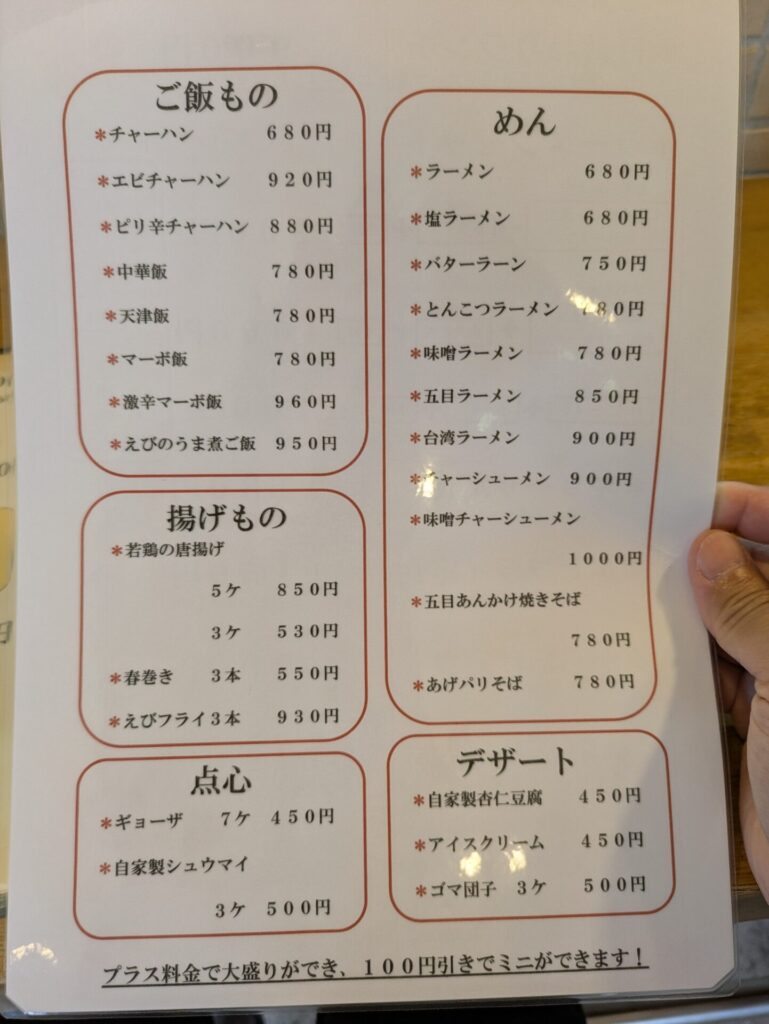 ご飯もの
*チャーハン 680円
*エビチャーハン 920円
*ピリ辛チャーハン 880円
*中華飯 780円
*天津飯 780円
*マーボ飯 780円
*激辛マーボ飯 960円
*えびのうま煮ご飯 950円
揚げもの
*若鶏の唐揚げ
5ケ 850円
3ケ 530円
*春巻き 3本 550円
*えびフライ3本 930円
点心
*ギョーザ 7ケ 450円
*自家製シュウマイ
3ケ 500円
めん
*ラーメン 680円
*塩ラーメン 680円
*バターラーン 750円
*とんこつラーメン 80円
*味噌ラーメン 780円
*五目ラーメン 850円
*台湾ラーメン 900円
*チャーシューメン 900円
*味噌チャーシューメン
1000円
*五目あんかけ焼きそば
780円
*あげパリそば 780円
デザート
*自家製杏仁豆腐 450円
*アイスクリーム 450円
*ゴマ団子 3ケ 500円
プラス料金で大盛りができ、100円引きでミニができます!